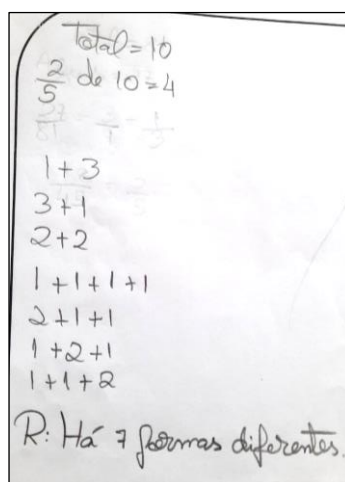 Total = 10
2/5 de 10 = 4
1 + 3
3 + 1
2 + 2
1 + 1 + 1 + 1
2 + 1 + 1
1 + 2 + 1
1 + 1 + 2
R: Há 7 formas diferentes.